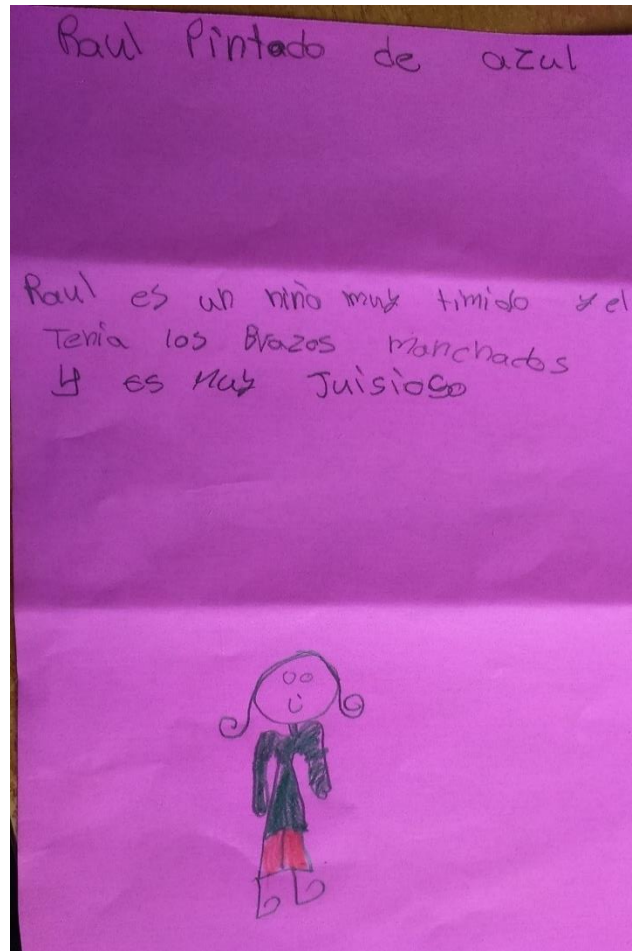 Raul Pintado de azul
Raul es un niño muy timido y el
Tenia los Brazos Manchados
y es Muy Juisioso